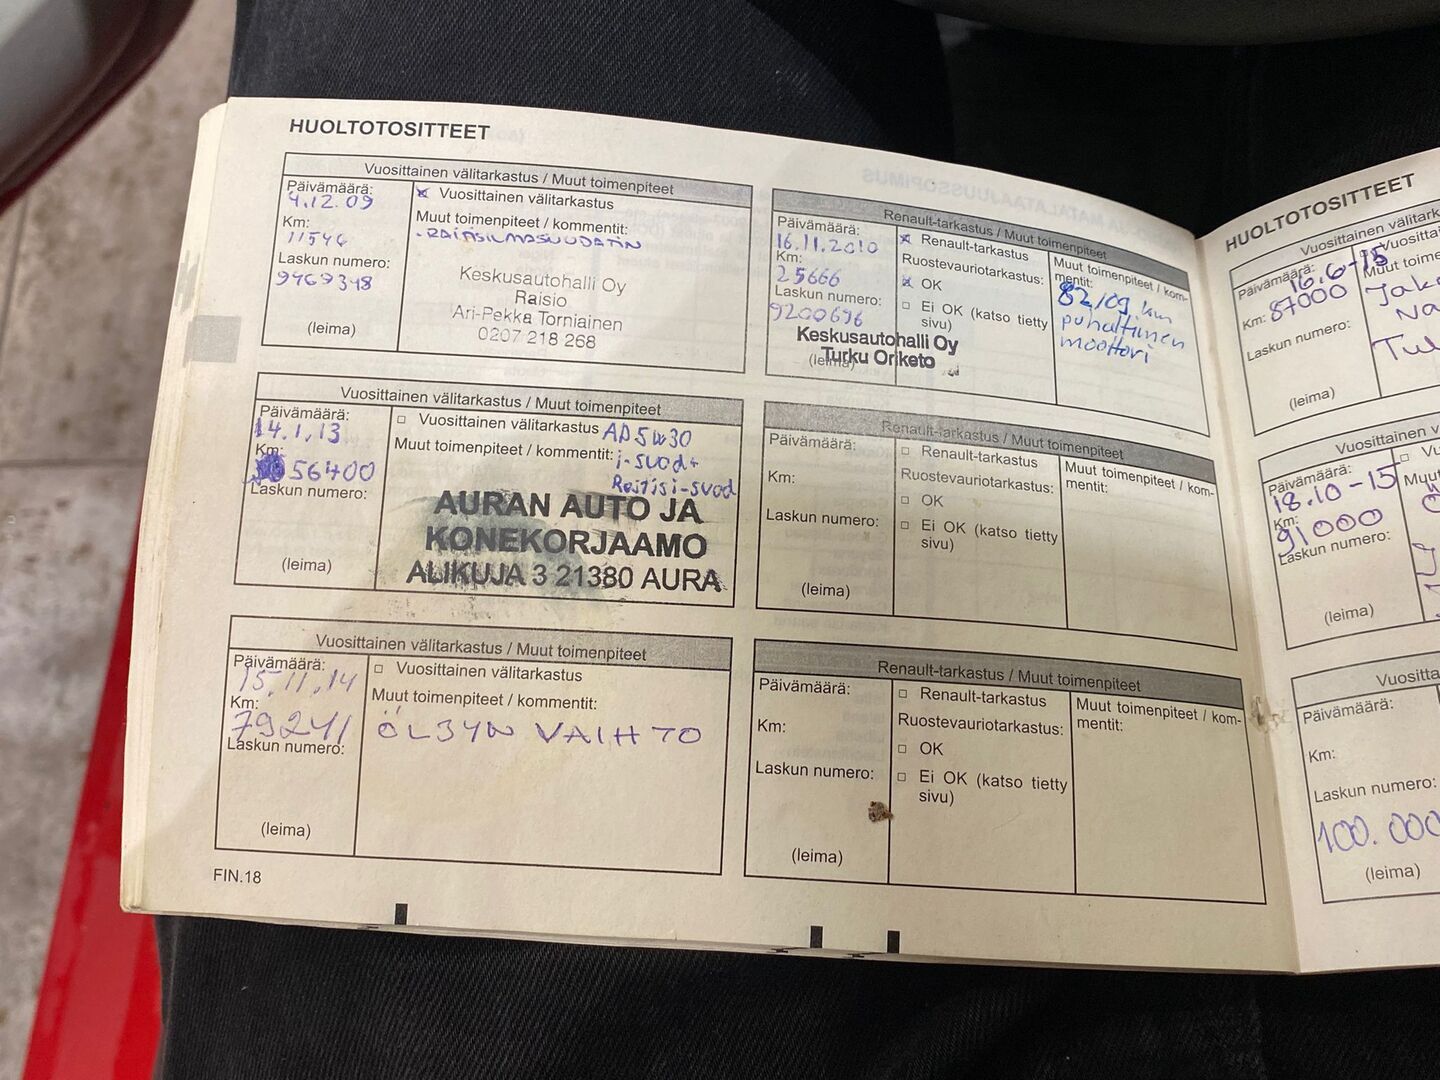 HUOLTOTOSITTEET
Vuosittainen välitarkastus / Muut toimenpiteet
Päivämäärä:
4.12.09
Km:
11546
Laskun numero:
9469348
(leima)
x Vuosittainen välitarkastus
Muut toimenpiteet / kommentit:
- RAITISILMASUODATIN
Keskusautohalli Oy
Raisio
Ari-Pekka Torniainen
0207 218 268
Renault-tarkastus / Muut toimenpiteet
Päivämäärä:
16.11.2010
Km:
25666
Laskun numero:
9200696
Keskusautohalli Oy
Turku Oriketo
(leima)
x Renault-tarkastus
Ruostevauriotarkastus:
x OK
□ Ei OK (katso tietty
sivu)
Muut toimenpiteet / kom-
mentit:
puhaltimen
moottori
Vuosittainen välitarkastus / Muut toimenpiteet
Päivämäärä:
14.1.13
Km:
56400
Laskun numero:
(leima)
□ Vuosittainen välitarkastus AD5W30
Muut toimenpiteet / kommentit: i-suod+
Raitisi-suod
AURAN AUTO JA
KONEKORJAAMO
ALIKUJA 3 21380 AURA
Renault-tarkastus / Muut toimenpiteet
Päivämäärä:
Km:
Laskun numero:
(leima)
□ Renault-tarkastus
Ruostevauriotarkastus:
□ OK
□ Ei OK (katso tietty
sivu)
Muut toimenpiteet / kom-
mentit:
Vuosittainen välitarkastus / Muut toimenpiteet
Päivämäärä:
15.11.14
Km:
79241
Laskun numero:
(leima)
□ Vuosittainen välitarkastus
Muut toimenpiteet / kommentit:
ÖLJYN VAIHTO
Renault-tarkastus / Muut toimenpiteet
Päivämäärä:
Km:
Laskun numero:
(leima)
□ Renault-tarkastus
Ruostevauriotarkastus:
□ OK
□ Ei OK (katso tietty
sivu)
Muut toimenpiteet / kom-
mentit:
FIN.18
HUOLTOTOSITTEET
Vuosittainen välitark
Päivämäärä:
16.6-15
Km: 87000
Laskun numero:
(leima)
Muut toime
Vuosittainen v
Päivämäärä:
18.10-15
Km:
91000
Laskun numero:
(leima)
Muut
Vuositta
Päivämäärä:
Km:
Laskun numero:
100.000
(leima)